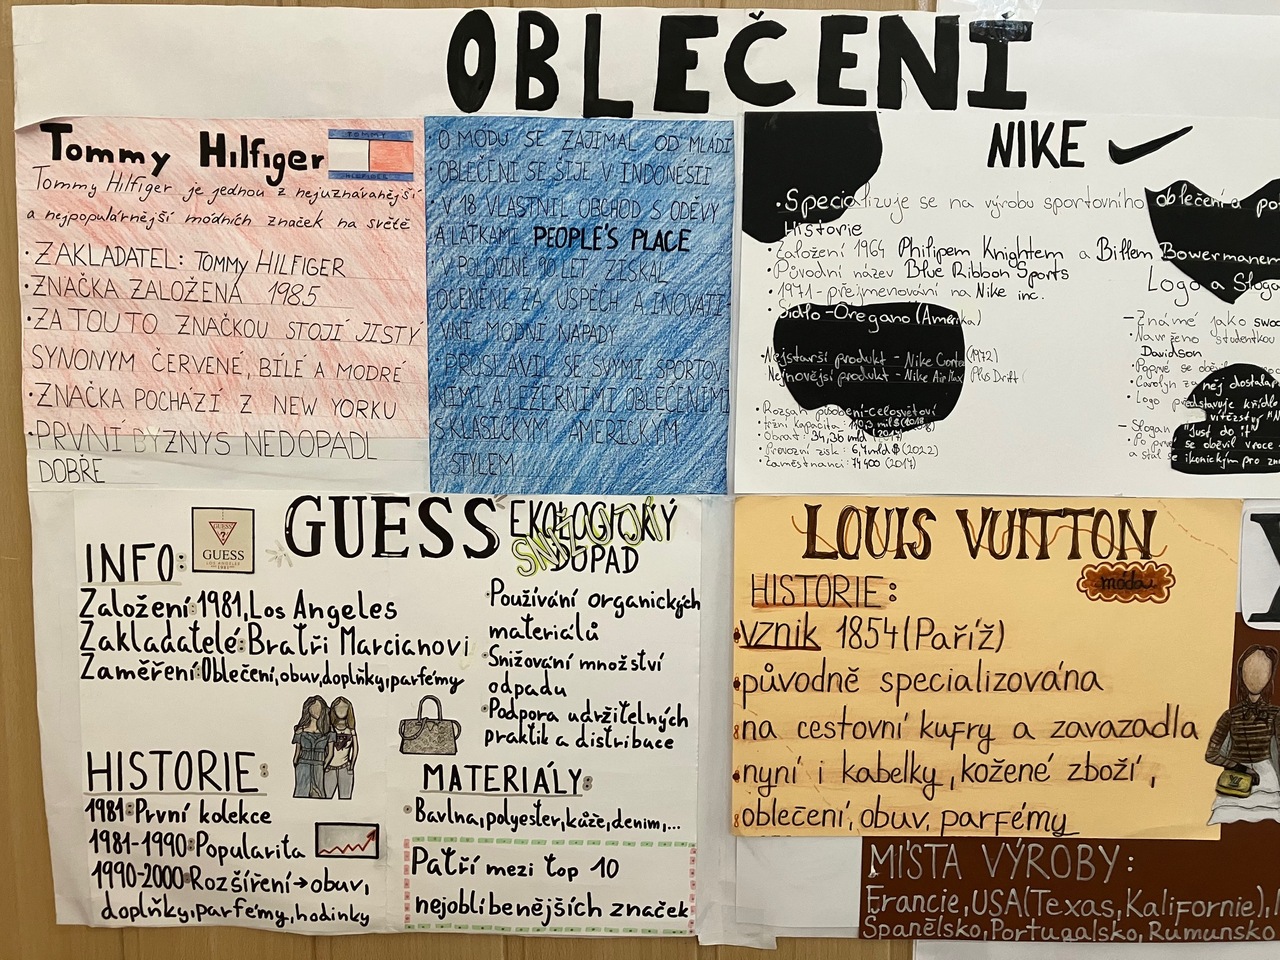 OBLEČENÍ
Tommy Hilfiger
TOMMY
HILFIGER
Tommy Hilfiger je jednou z nejuznávanější
a nejpopulárnější módních značek na světě
• ZAKLADATEL: TOMMY HILFIGER
• ZNAČKA ZALOŽENA 1985
• ZA TOUTO ZNAČKOU STOJÍ JISTÝ
SYNONYM ČERVENÉ, BÍLÉ A MODRÉ
• ZNAČKA POCHÁZÍ Z NEW YORKU
• PRVNÍ BYZNYS NEDOPADL
DOBŘE
O MÓDU SE ZAJÍMAL OD MLÁDÍ
OBLEČENÍ SE ŠIJE V INDONÉSII
V 18 VLASTNIL OBCHOD S ODĚVY
A LÁTKAMI PEOPLE'S PLACE
V POLOVINĚ 90 LET ZÍSKAL
OCENĚNÍ ZA ÚSPĚCH A INOVATI-
VNÍ MÓDNÍ NÁPADY
• PROSLAVIL SE SVÝMI SPORTOV-
NÍMI A LEŽÉRNÍMI OBLEČENÍMI
S KLASICKÝM AMERICKÝM
STYLEM
NIKE
• Specializuje se na výrobu sportovního oblečení a
Historie
• Založení 1964 Philipem Knightem a Billem Bowermanem
• Původní název Blue Ribbon Sports
• 1971 - přejmenování na Nike inc.
• Sídlo - Oregano (Amerika)
• Nejstarší produkt - Nike Cortez (1972)
Nejnovější produkt - Nike Air Max Plus Drift
• Rozsah působení - celosvětový
• Obrat: 34,36 mld (2017)
• Provozní zisk: 6,7 mld $ (2022)
• Zaměstnanci: 74 400 (2017)
Logo a Sloga
- Známé jako swoo
• Navrženo studentkou
Davidson
• Poprvé se
• Carolyn za něj dostala
• Logo představuje křídlo
vítězství
- Slogan "Just do it"
• Po prvé se obevil v roce
a stal se ikonickým pro zn
GUESS
GUESS
?
GUESS
LOS ANGELES
1981
INFO:
Založení: 1981, Los Angeles
Zakladatelé: Bratři Marcianovi
Zaměření: Oblečení, obuv, doplňky, parfémy
HISTORIE:
1981: První kolekce
1981-1990: Popularita
1990-2000: Rozšíření → obuv,
doplňky, parfémy, hodinky
EKOLOGICKÝ
DOPAD
• Používání organických
materiálů
• Snižování množství
odpadu
• Podpora udržitelných
praktik a distribuce
MATERIÁLY:
• Bavlna, polyester, kůže, denim,...
Patří mezi top 10
nejoblíbenějších značek
LOUIS VUITTON
móda
HISTORIE:
• vznik 1854 (Paříž)
• původně specializována
na cestovní kufry a zavazadla
• nyní i kabelky, kožené zboží,
oblečení, obuv, parfémy
MÍSTA VÝROBY:
Francie, USA (Texas, Kalifornie),
Španělsko, Portugalsko, Rumunsko